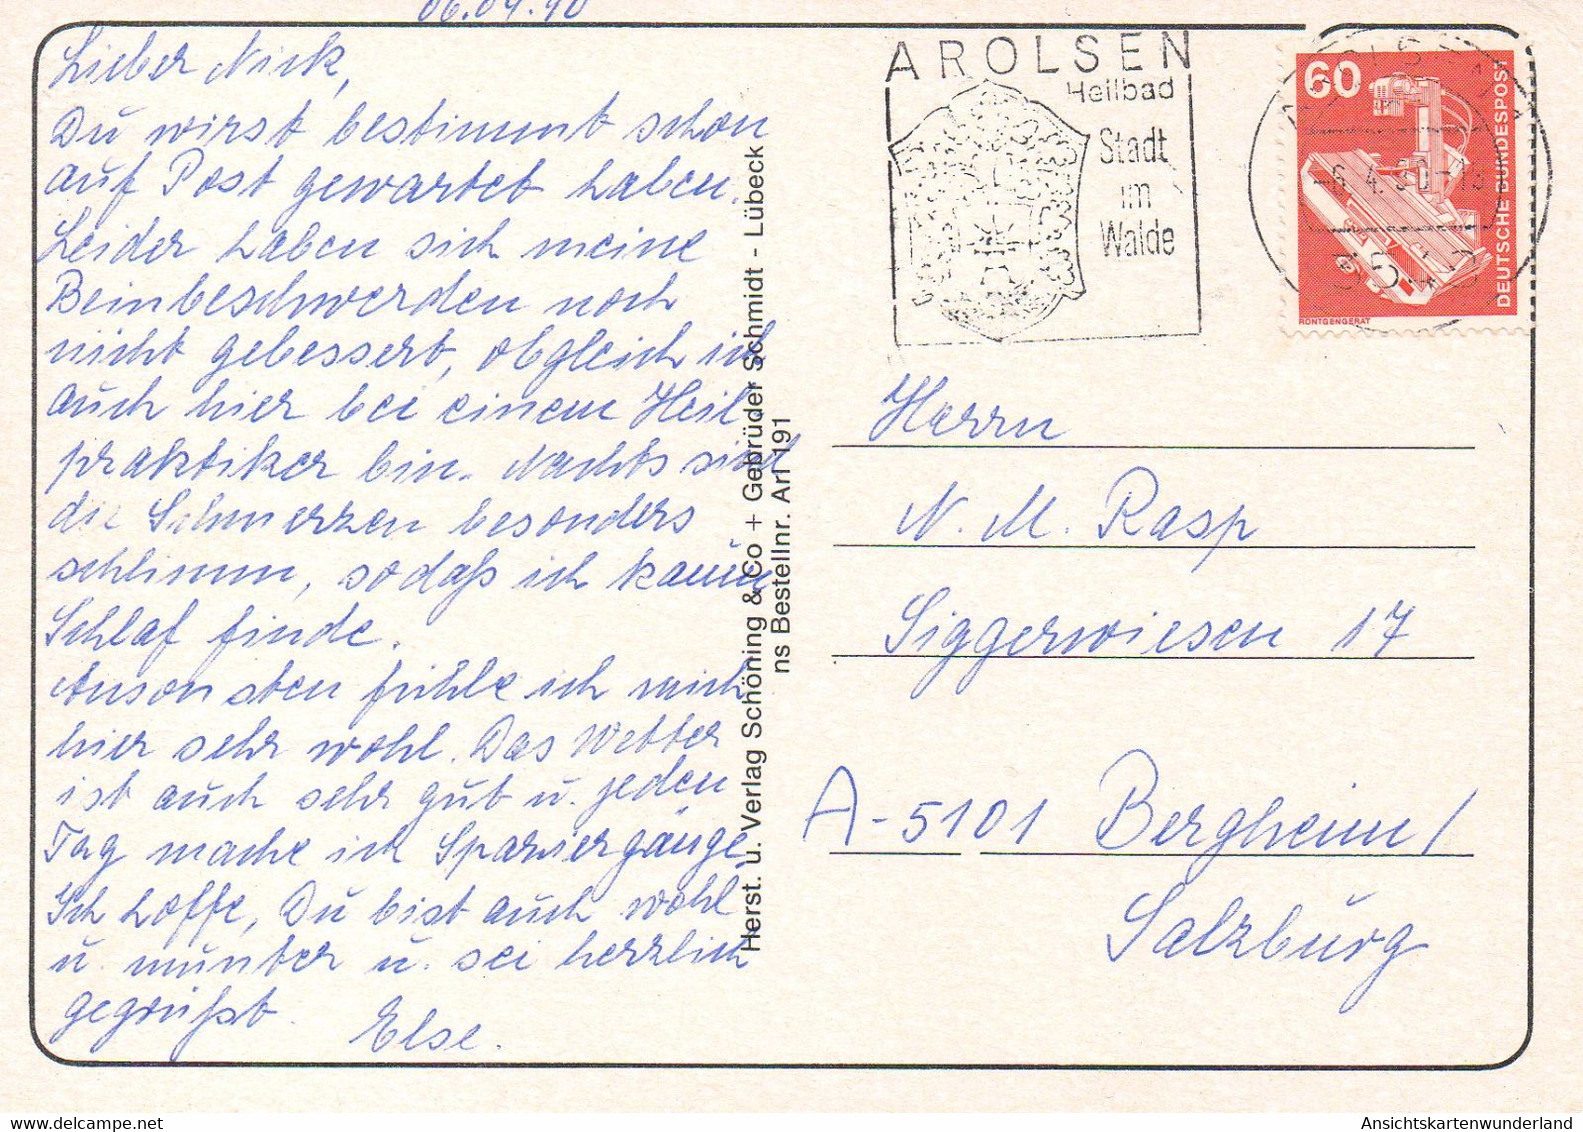 06.04.90
Lieber Nick,
Du wirst bestimmt schon
auf Post gewartet haben.
Leider haben sich meine
Beinbeschwerden noch
nicht gebessert, obgleich ich
auch hier bei einem Heil
praktiker bin. Nachts sind
die Schmerzen besonders
schlimm, sodaß ich kaum
Schlaf finde.
Ansonsten fühle ich mich
hier sehr wohl. Das Wetter
ist auch sehr gut u. jeden
Tag mache ich Spaziergänge.
Ich hoffe, Du bist auch wohl
u. munter u. sei herzlich
gegrüßt. Else.
Herst. u. Verlag Schöning & Co + Gebrüder Schmidt - Lübeck
ns Bestellnr. Arl 191
AROLSEN
Heilbad
Stadt
im
Walde
60
DEUTSCHE BUNDESPOST
RÖNTGENGERÄT
-6.4.90-18
Herrn
N. M. Rasp
Siggerwiesen 17
A-5101 Bergheim/
Salzburg
Ansichtskartenwunderland